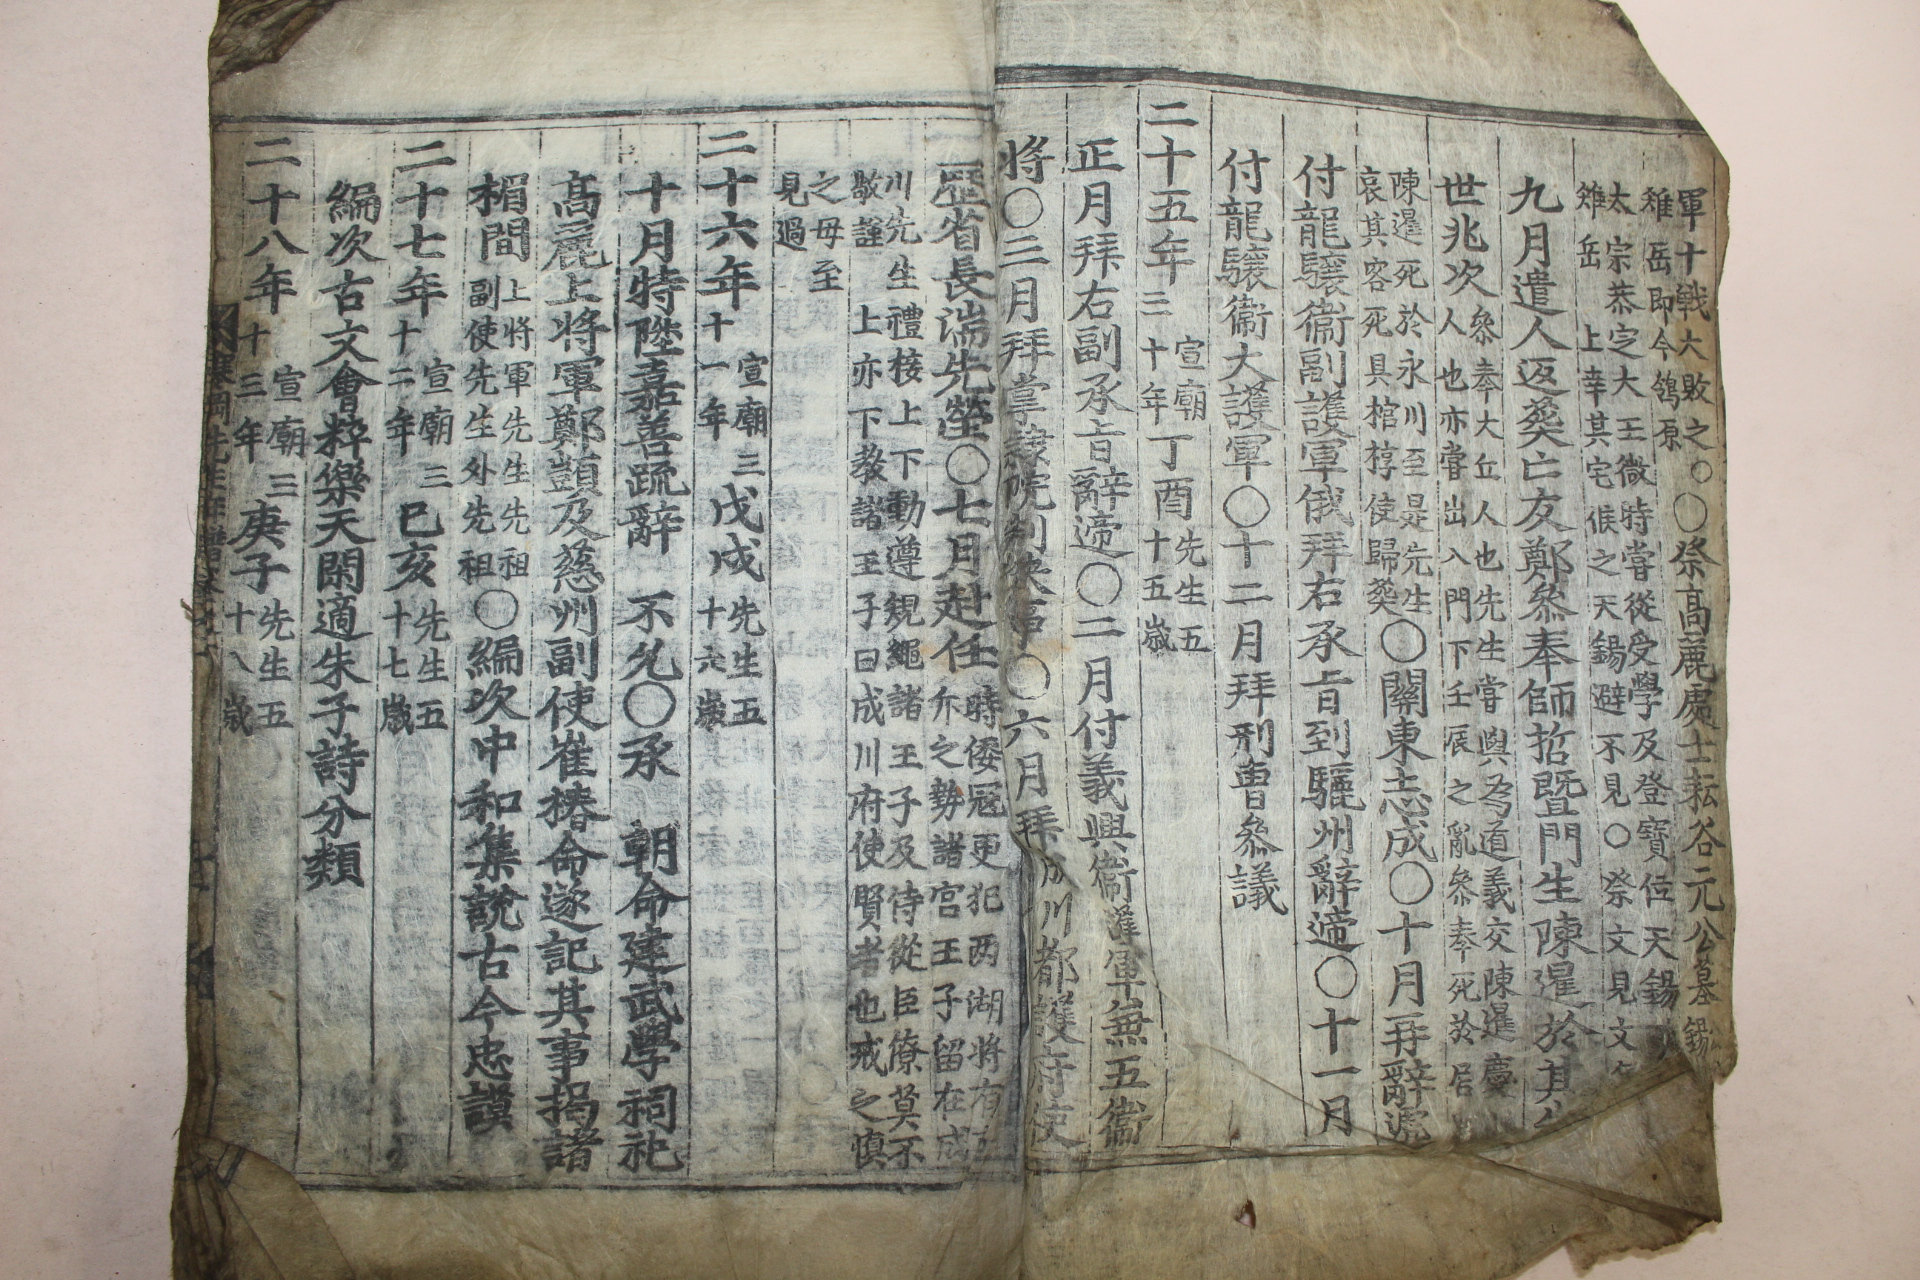 軍十戰大敗之○○祭高麗處士耘谷元公墓
雉岳即今鴒原
太宗恭定大王微時嘗從受學及登寶位天錫
雉岳 上幸其宅候之天錫避不見○祭文見文
九月遣人返葬亡友鄭叅奉師哲曁門生陳暹於其
世兆次叅奉大丘人也先生嘗與為道義交陳暹慶
人也亦嘗出入門下壬辰之亂叅奉死於居
陳暹死於永川至是先生
哀其客死具棺椁使歸葬○關東志成○十月再辭遞
付龍驤衛副護軍俄拜右承旨到驪州辭遞○十一月
付龍驤衛大護軍○十二月拜刑曹叅議
二十五年宣廟三十年丁酉先生五十五歲
正月拜右副承旨辭遞○二月付義興衛護軍兼五衛
將○三月拜掌隸院判決事○六月拜成川都護府使
歷省長湍先塋○七月赴任時倭冦更犯两湖將有
之勢諸宮王子留在成
川先生禮接上下動遵䂓繩諸王子及侍從臣僚莫不
敬謹 上亦下教諸王子曰成川府使賢者也戒之愼
之毋至
見過
二十六年宣廟三十一年戊戌先生五十六歲
十月特陞嘉善䟽辭 不允○承 朝命建武學祠祀
高麗上將軍鄭顗及慈州副使崔椿命遂記其事揭諸
楣間上將軍先生先祖
副使先生外先祖○編次中和集說古今忠謨
二十七年宣廟三十二年己亥先生五十七歲
編次古文會粹樂天閑適朱子詩分類
二十八年宣廟三十三年庚子先生五十八歲
寒岡先生年譜卷之